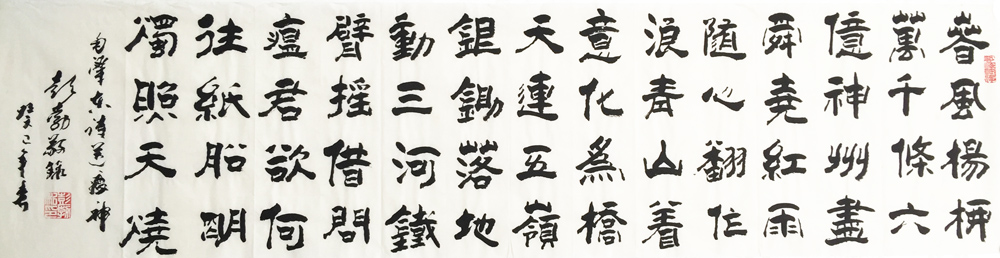 春風楊柳
萬千條六
億神州盡
舜堯紅雨
隨心翻作
浪青山着
意化為橋
天連五嶺
銀鋤落地
動三河鐵
臂摇借問
瘟君欲何
往紙船明
燭照天燒
毛澤東詩送瘟神
彭勃敬錄
癸巳年春